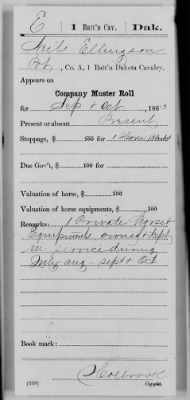 E 1 Batt'n Cav. Dak.
Nils Ellingson
Pvt, Co. A, 1 Batt'n Dakota Cavalry.
Appears on
Company Muster Roll
for Sep & Oct, 186
Present or absent Present
Stoppage, $ 100 for 1 Horse Blanket
Due Gov't, $ 100 for
Valuation of horse, $ 100
Valuation of horse equipments, $ 100
Remarks: 1 Private Horse &
Equipments owned & kept
in service during
July Aug Sept & Oct
Book mark:
Holbrook
(358) Copyist.